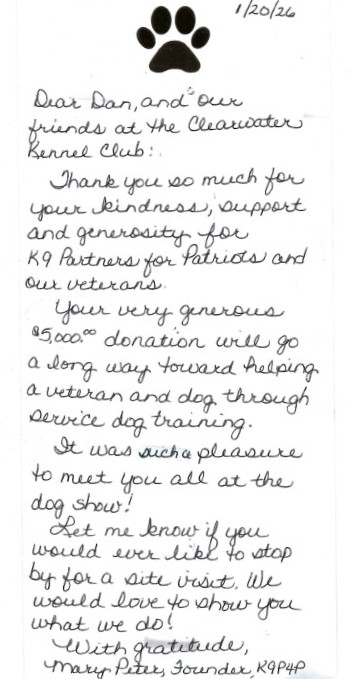 1/20/26
Dear Dan, and our
friends at the Clearwater
Kennel Club:
Thank you so much for
your kindness, support
and generosity for
K9 Partners for Patriots and
our veterans.
Your very generous
$5,000.00 donation will go
a long way toward helping
a veteran and dog through
service dog training.
It was such a pleasure
to meet you all at the
dog show!
Let me know if you
would ever like to stop
by for a site visit. We
would love to show you
what we do!
With gratitude,
Mary Peter, Founder, K9P4P